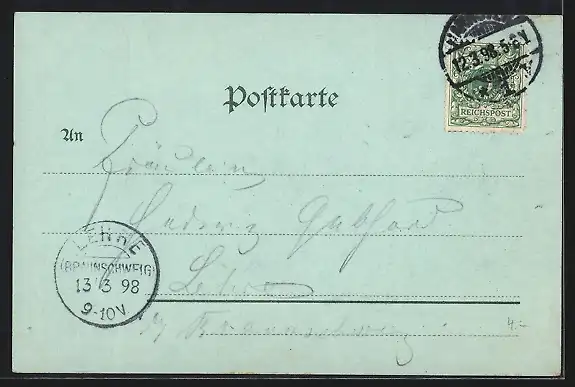 12.3.98.5-6N.
REICHSPOST
Postkarte
An
Fräulein
Gebhard
LEHRE
(BRAUNSCHWEIG)
13 3 98
9-10V
Lehre
b/ Braunschweig
4.-